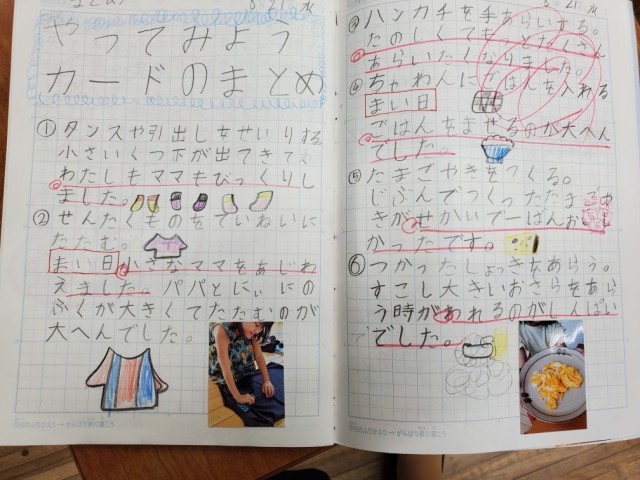 まとめ
8/21 水
やってみよう
カードのまとめ
①タンスや引出しをせいりする
小さいくつ下が出てきて
わたしもママもびっくりし
ました。
②せんたくものをていねいに
たたむ。
まい日小さなママをあじわ
えました。パパとにぃにの
ふくが大きくてたたむのが
大へんでした。
今日のふりかえり→がんばり表に書こう
8/21 水
ハンカチを手あらいする。
たのしくてもっとたくさん
あらいたくなりました。
④ちゃわんにごはんを入れる
まい日
ごはんをまぜるのが大へん
でした。
⑤たまごやきをつくる。
じぶんでつくったたまごや
きがせかいで一ばんお
かったです。
⑥つかったしょっきをあらう。
すこし大きいおさらをあら
う時がわれるのがしんぱい
でした。
今日のふりかえり→がんばり表に書こう